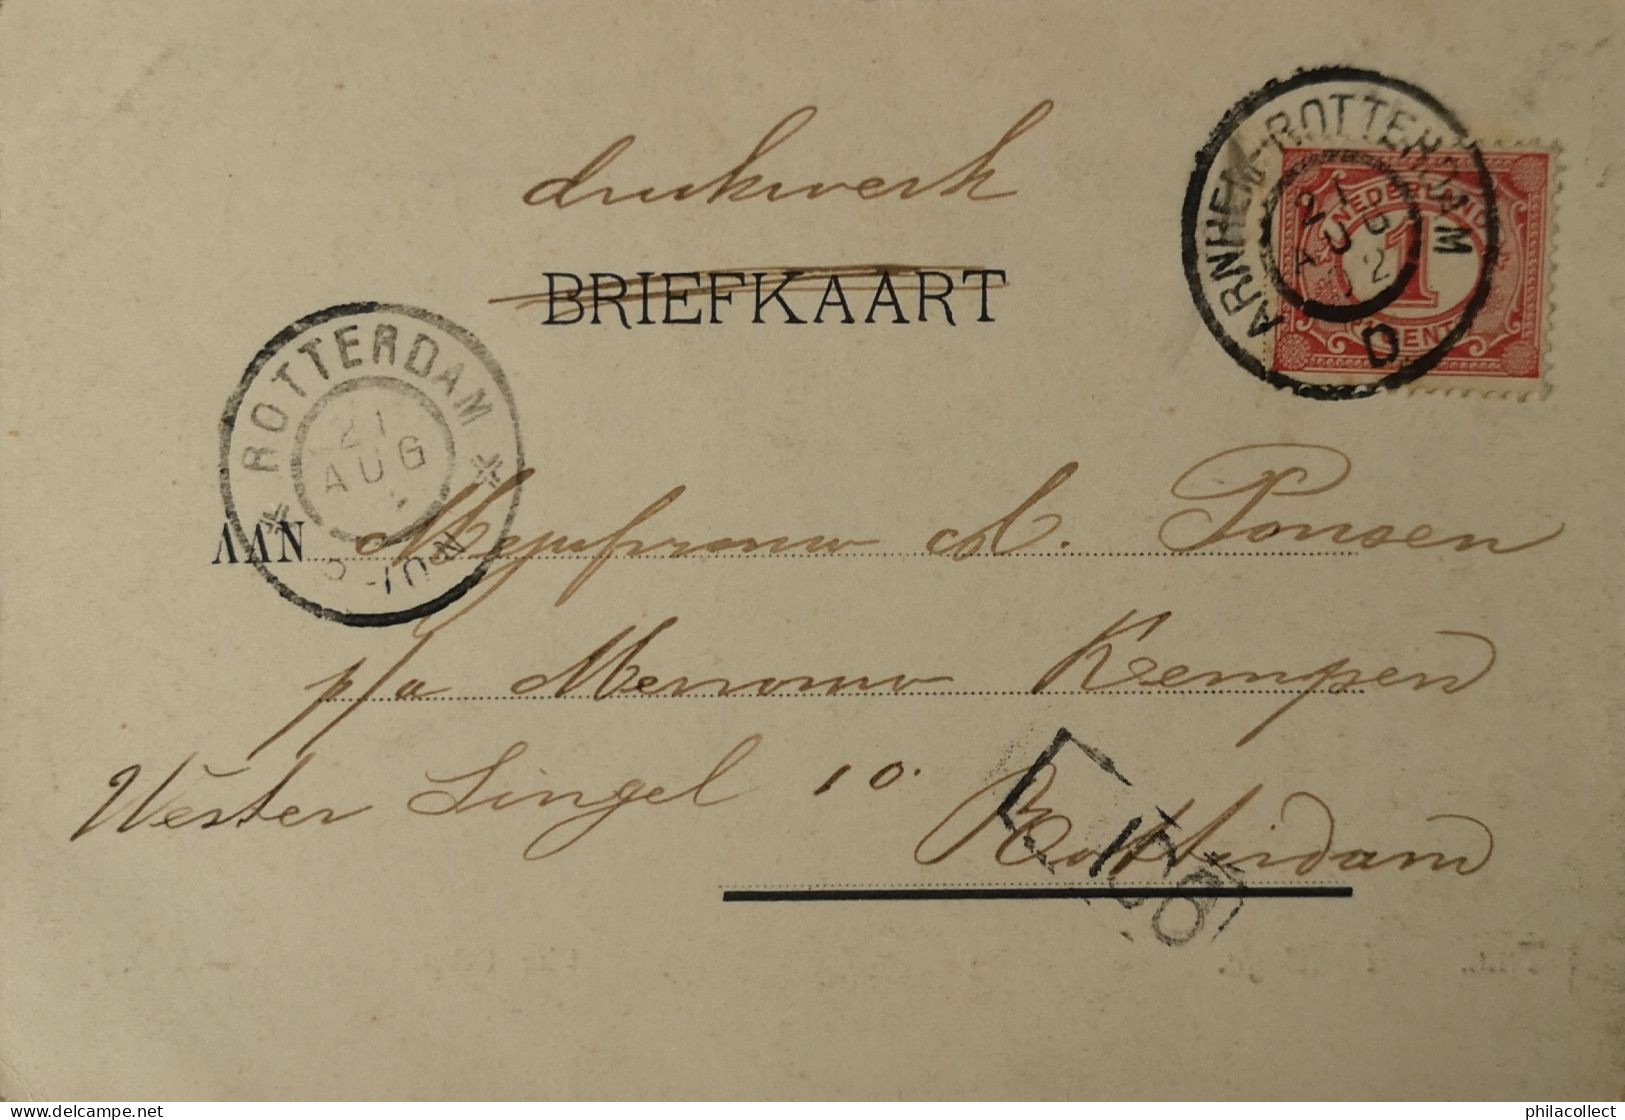 drukwerk
BRIEFKAART
ARNHEM-ROTTERDAM
21
AUG
02
D
NEDERLAND
1
CENT
ROTTERDAM
21
AUG
AAN Mejufrouw A. Ponsen
p/a Mevrouw Kempen
Wester Singel 10.
Rotterdam
philacollect